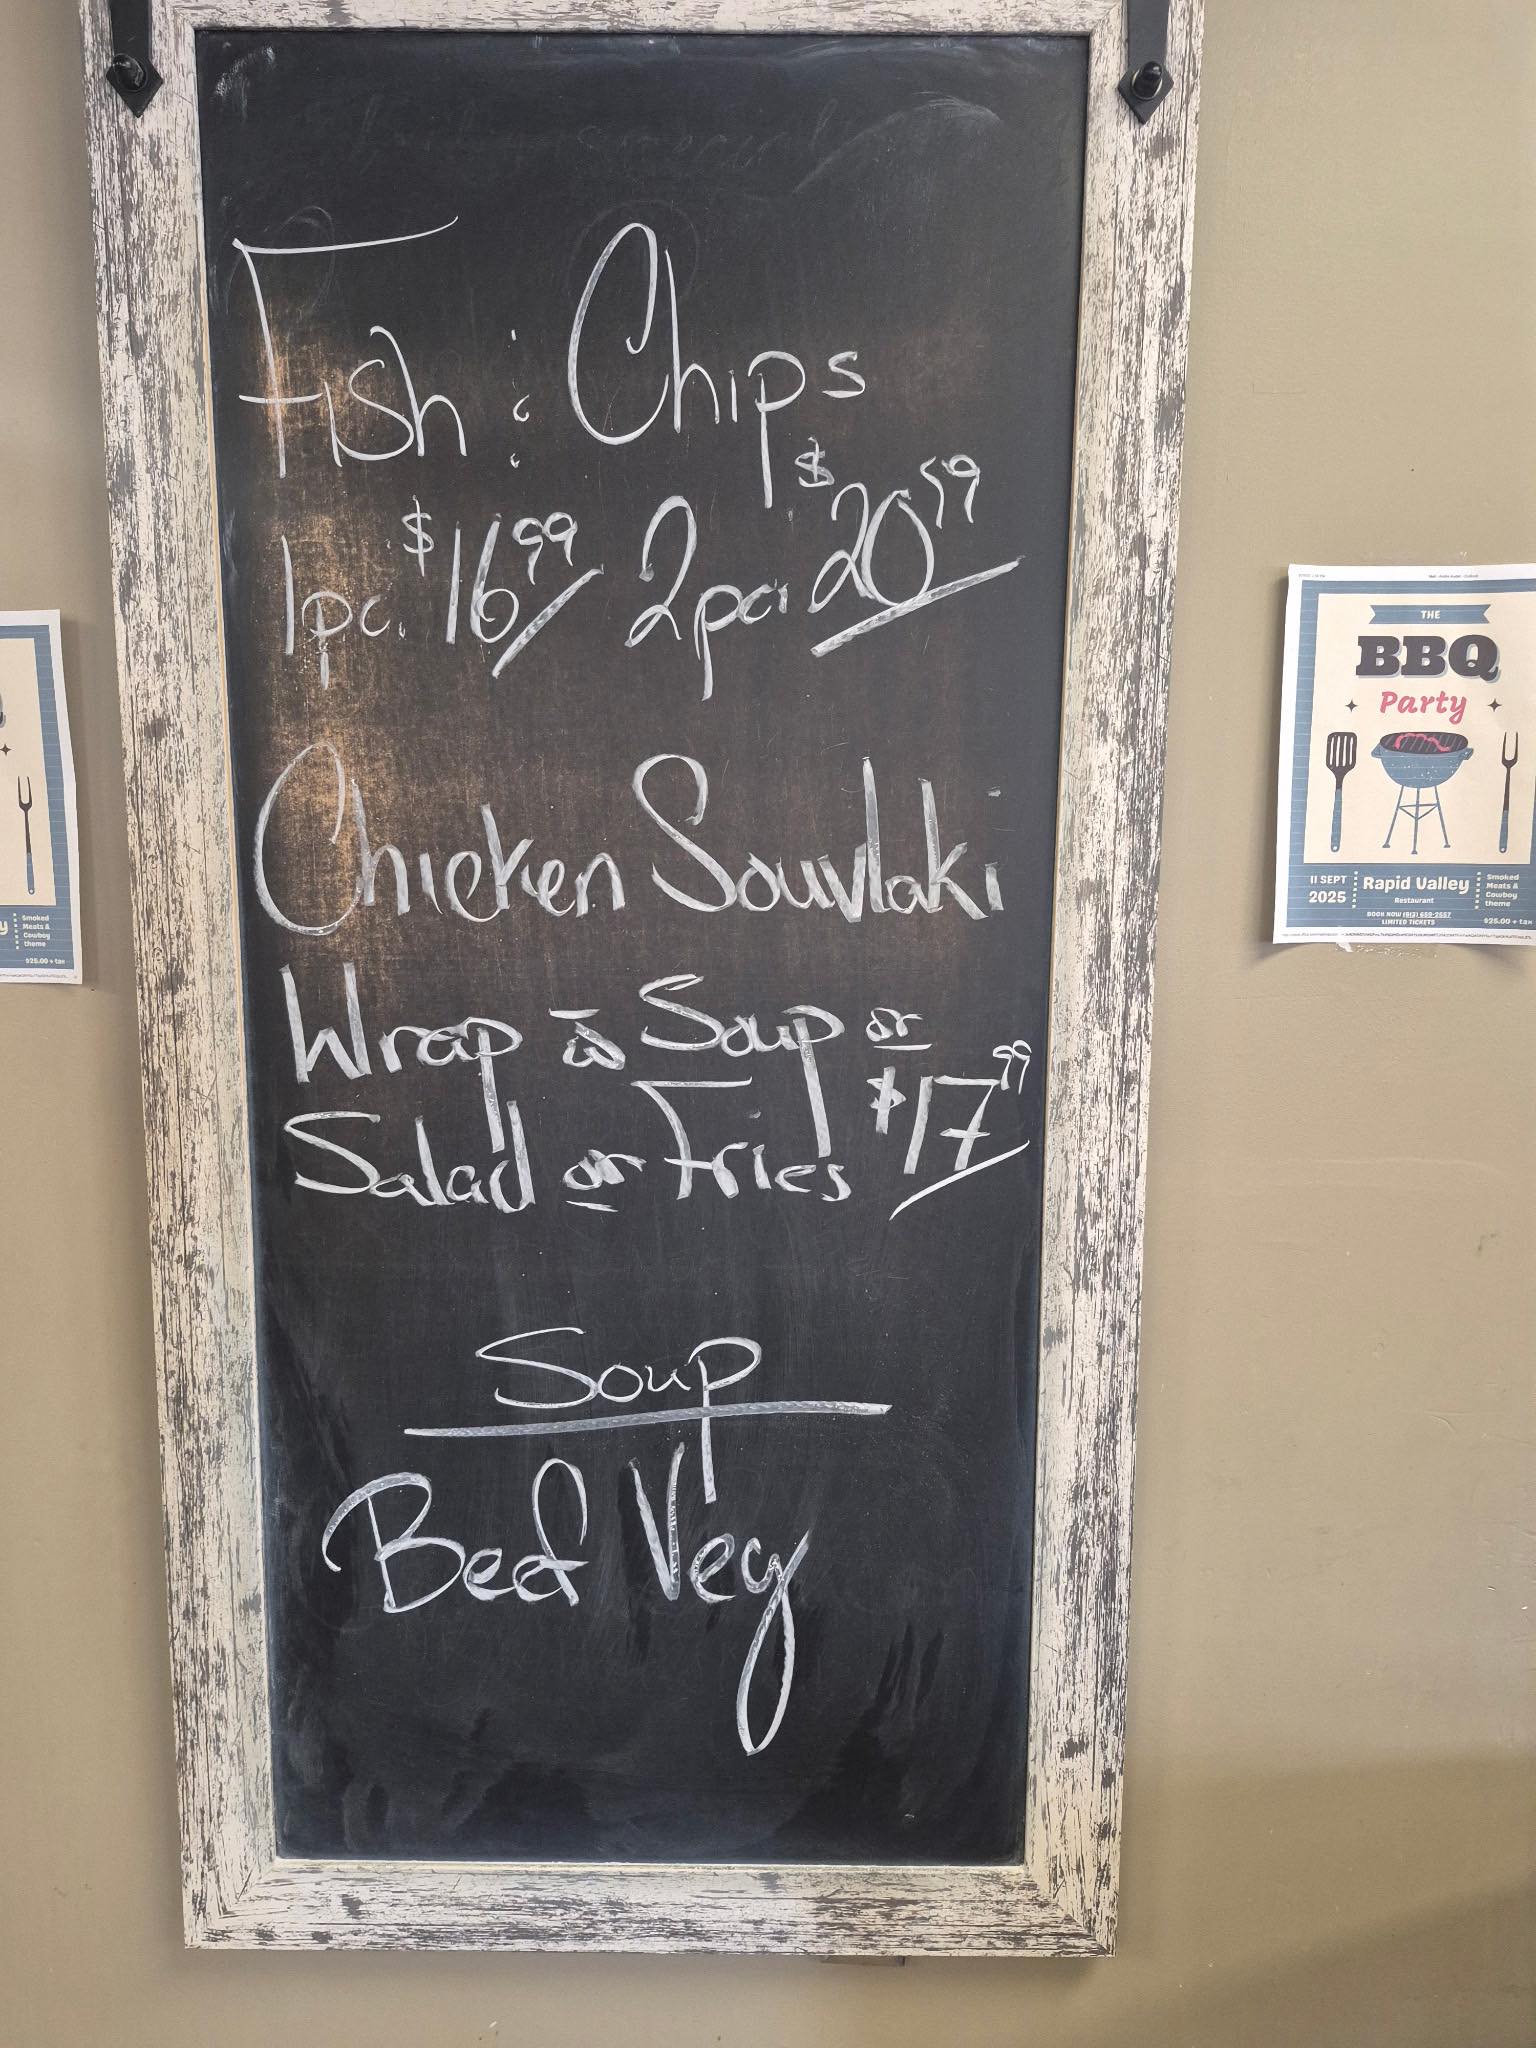 Fish & Chips
1pc. $16.99 2pc. $20.99
Chicken Souvlaki
Wrap w Soup or
Salad or Fries $17.99
Soup
Beef Veg
THE
BBQ
Party
11 SEPT
2025
Rapid Valley
Restaurant
BOOK NOW (613) 659-2557
LIMITED TICKETS
Smoked
Meats &
Cowboy
theme
$25.00 + tax
y
Smoked
Meats &
Cowboy
theme
$25.00 + tax